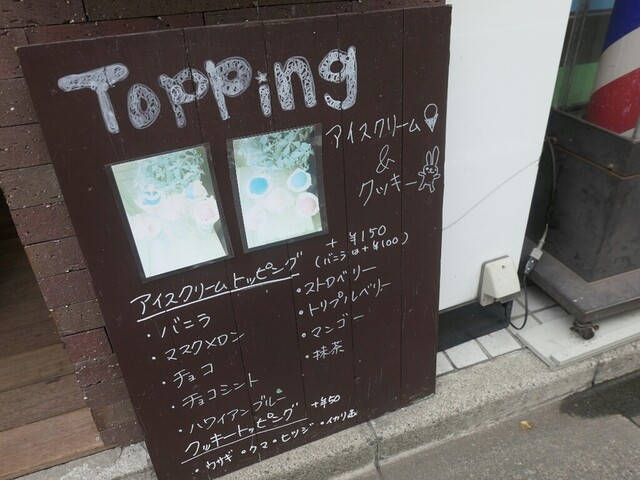 Topping
アイスクリーム
&
クッキー
アイスクリームトッピング
+ ¥150
(バニラは+¥100)
・バニラ
・マスクメロン
・チョコ
・チョコミント
・ハワイアンブルー
・ストロベリー
・トリプルベリー
・マンゴー
・抹茶
クッキートッピング +¥50
・ウサギ ・クマ ・ヒツジ ・イカリ